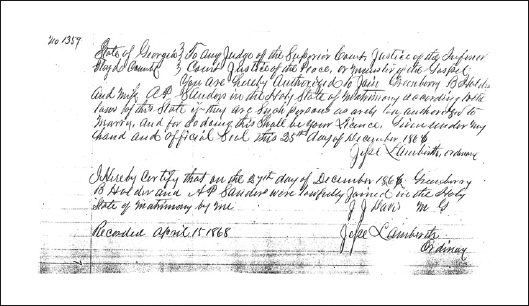 No 1359
State of Georgia } To any Judge of the Superior Court, Justice of the Inferior
Floyd County } Court Justice of the Peace, or Minister of the Gospel
You are hereby Authorized to Join Greenberry B Holder
and Miss A P Sanders in the Holy State of Matrimony according to the
laws of this State if they are such persons as are by law authorized to
Marry, and for so doing this shall be your Licence. Given under my
hand and Official Seal this 25th day of December 186
Jesse Lamberth, ordinary
I Hereby Certify that on the 27th day of December 186 Greenberry
B Holder and A P Sanders were lawfully Joined in the Holy
State of Matrimony by me
J J Davis M G
Recorded April 15 1868
Jesse Lamberth
Ordinary